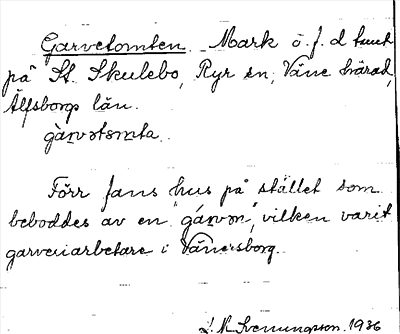 Garvetomten. Mark ö. f. d tomt
på St. Skulebo, Ryr sn, Väne härad,
Älfsborgs län.
gàrvətomta.
Förr fans hus på stället som
beboddes av en "gárvərn", vilken varit
garveriarbetare i Vänersborg.
1936